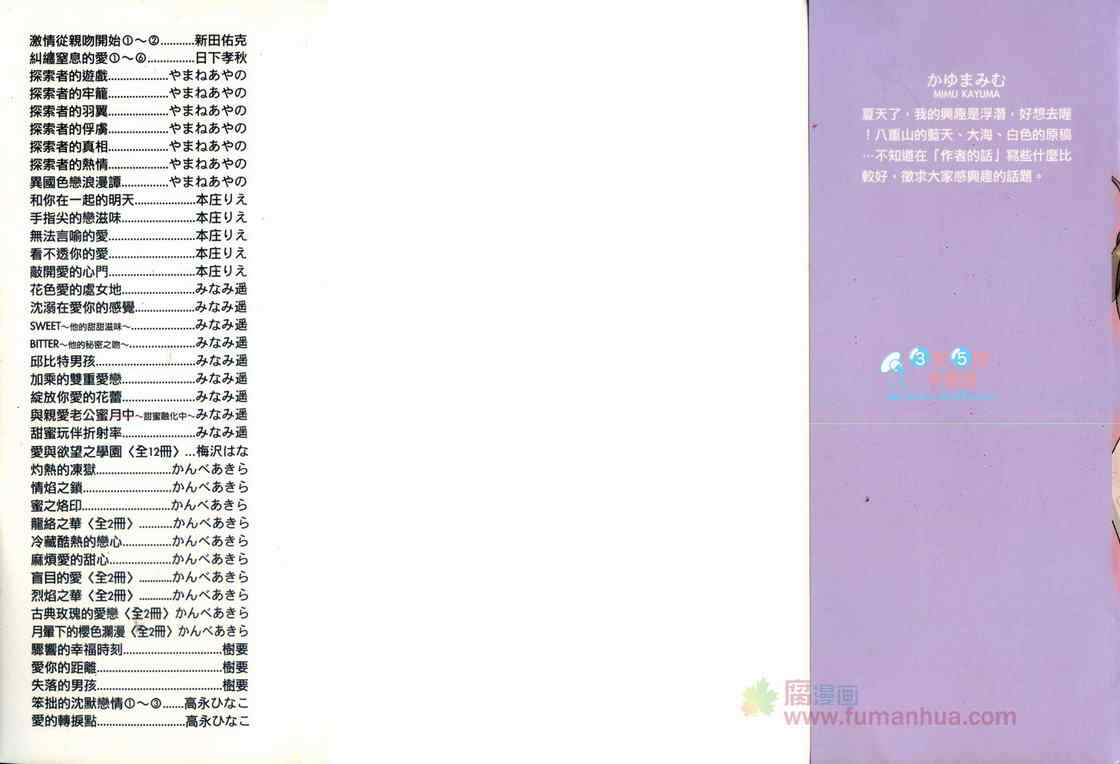 激情從親吻開始①～②...........新田佑克
糾纏窒息的愛①～⑥...............日下孝秋
探索者的遊戲....................やまねあやの
探索者的牢籠....................やまねあやの
探索者的羽翼....................やまねあやの
探索者的俘虜....................やまねあやの
探索者的真相....................やまねあやの
探索者的熱情....................やまねあやの
異國色戀浪漫譚...............やまねあやの
和你在一起的明天....................本庄りえ
手指尖的戀滋味........................本庄りえ
無法言喻的愛............................本庄りえ
看不透你的愛............................本庄りえ
敲開愛的心門............................本庄りえ
花色愛的處女地........................みなみ遥
沈溺在愛你的感覺....................みなみ遥
SWEET～他的甜甜滋味～.....................みなみ遥
BITTER～他的秘密之吻～.....................みなみ遥
邱比特男孩................................みなみ遥
加乘的雙重愛戀........................みなみ遥
綻放你愛的花蕾........................みなみ遥
與親愛老公蜜月中～甜蜜融化中～みなみ遥
甜蜜玩伴折射率........................みなみ遥
愛與欲望之學園〈全12冊〉...梅沢はな
灼熱的凍獄........................かんべあきら
情焰之鎖............................かんべあきら
蜜之烙印............................かんべあきら
龍絡之華〈全2冊〉...........かんべあきら
冷藏酷熱的戀心................かんべあきら
麻煩愛的甜心....................かんべあきら
盲目的愛〈全2冊〉...........かんべあきら
烈焰之華〈全2冊〉...........かんべあきら
古典玫瑰的愛戀〈全2冊〉かんべあきら
月暈下的櫻色瀾漫〈全2冊〉かんべあきら
驟響的幸福時刻................................樹要
愛你的距離........................................樹要
失落的男孩........................................樹要
笨拙的沈默戀情①～③.......高永ひなこ
愛的轉捩點............................高永ひなこ
かゆまみむ
MIMU KAYUMA
夏天了，我的興趣是浮潛，好想去喔
！八重山的藍天、大海、白色的原稿
…不知道在「作者的話」寫些什麼比
較好，徵求大家感興趣的話題。
3 5
腐漫画
www.fumanhua.com